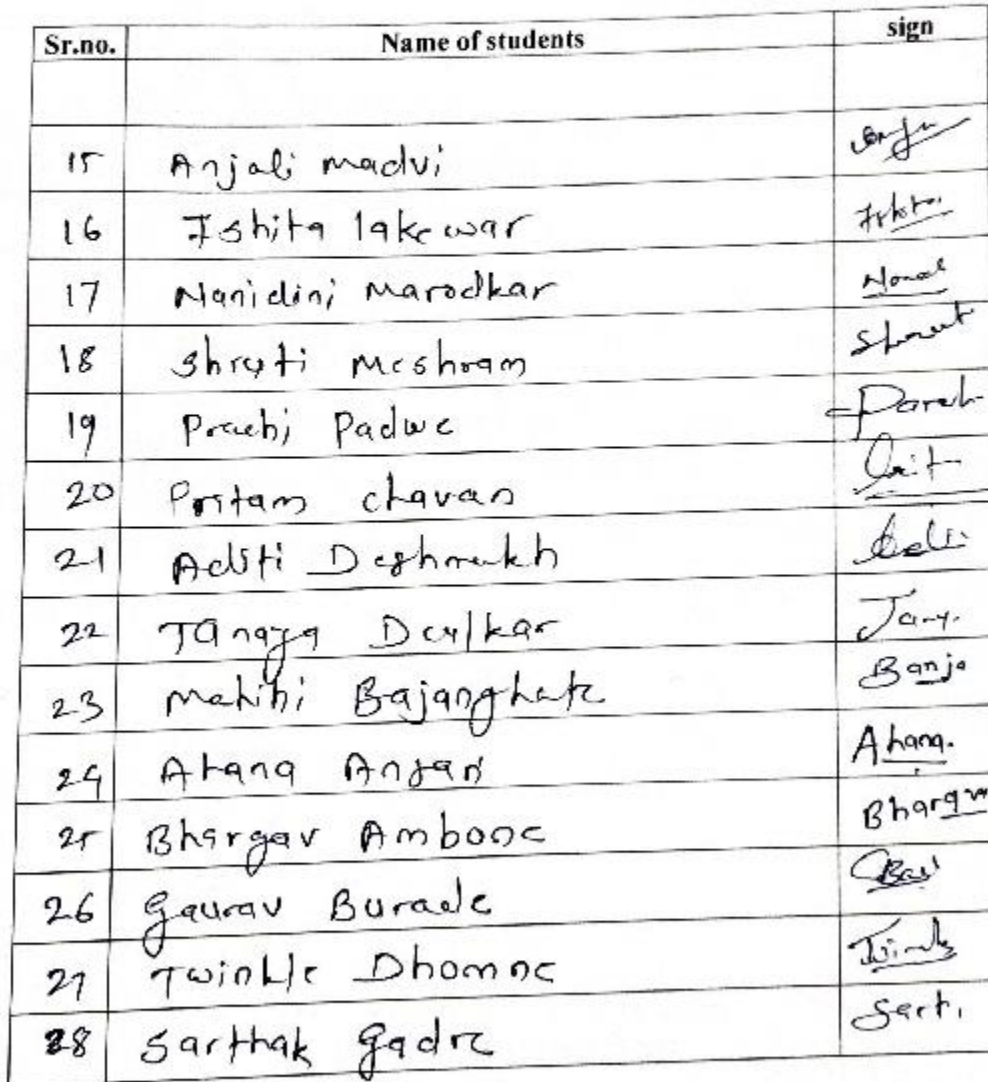 Sr.no. Name of students sign
15 Anjali madvi
16 Ishita lakewar Ishita.
17 Nanidini Marodkar
18 Shruti Meshram Shrut
19 Prachi Padwe
20 Pritam chavan
21 Aditi Deshmukh
22 Tanaya Deulkar Tany.
23 Mahihi Bajanghate Banja
24 Ahana Anjan Ahana.
25 Bhargav Ambone Bhargav
26 Gaurav Burade
27 Twinkle Dhomne Twinkle
28 Sarthak Gadre Sart.